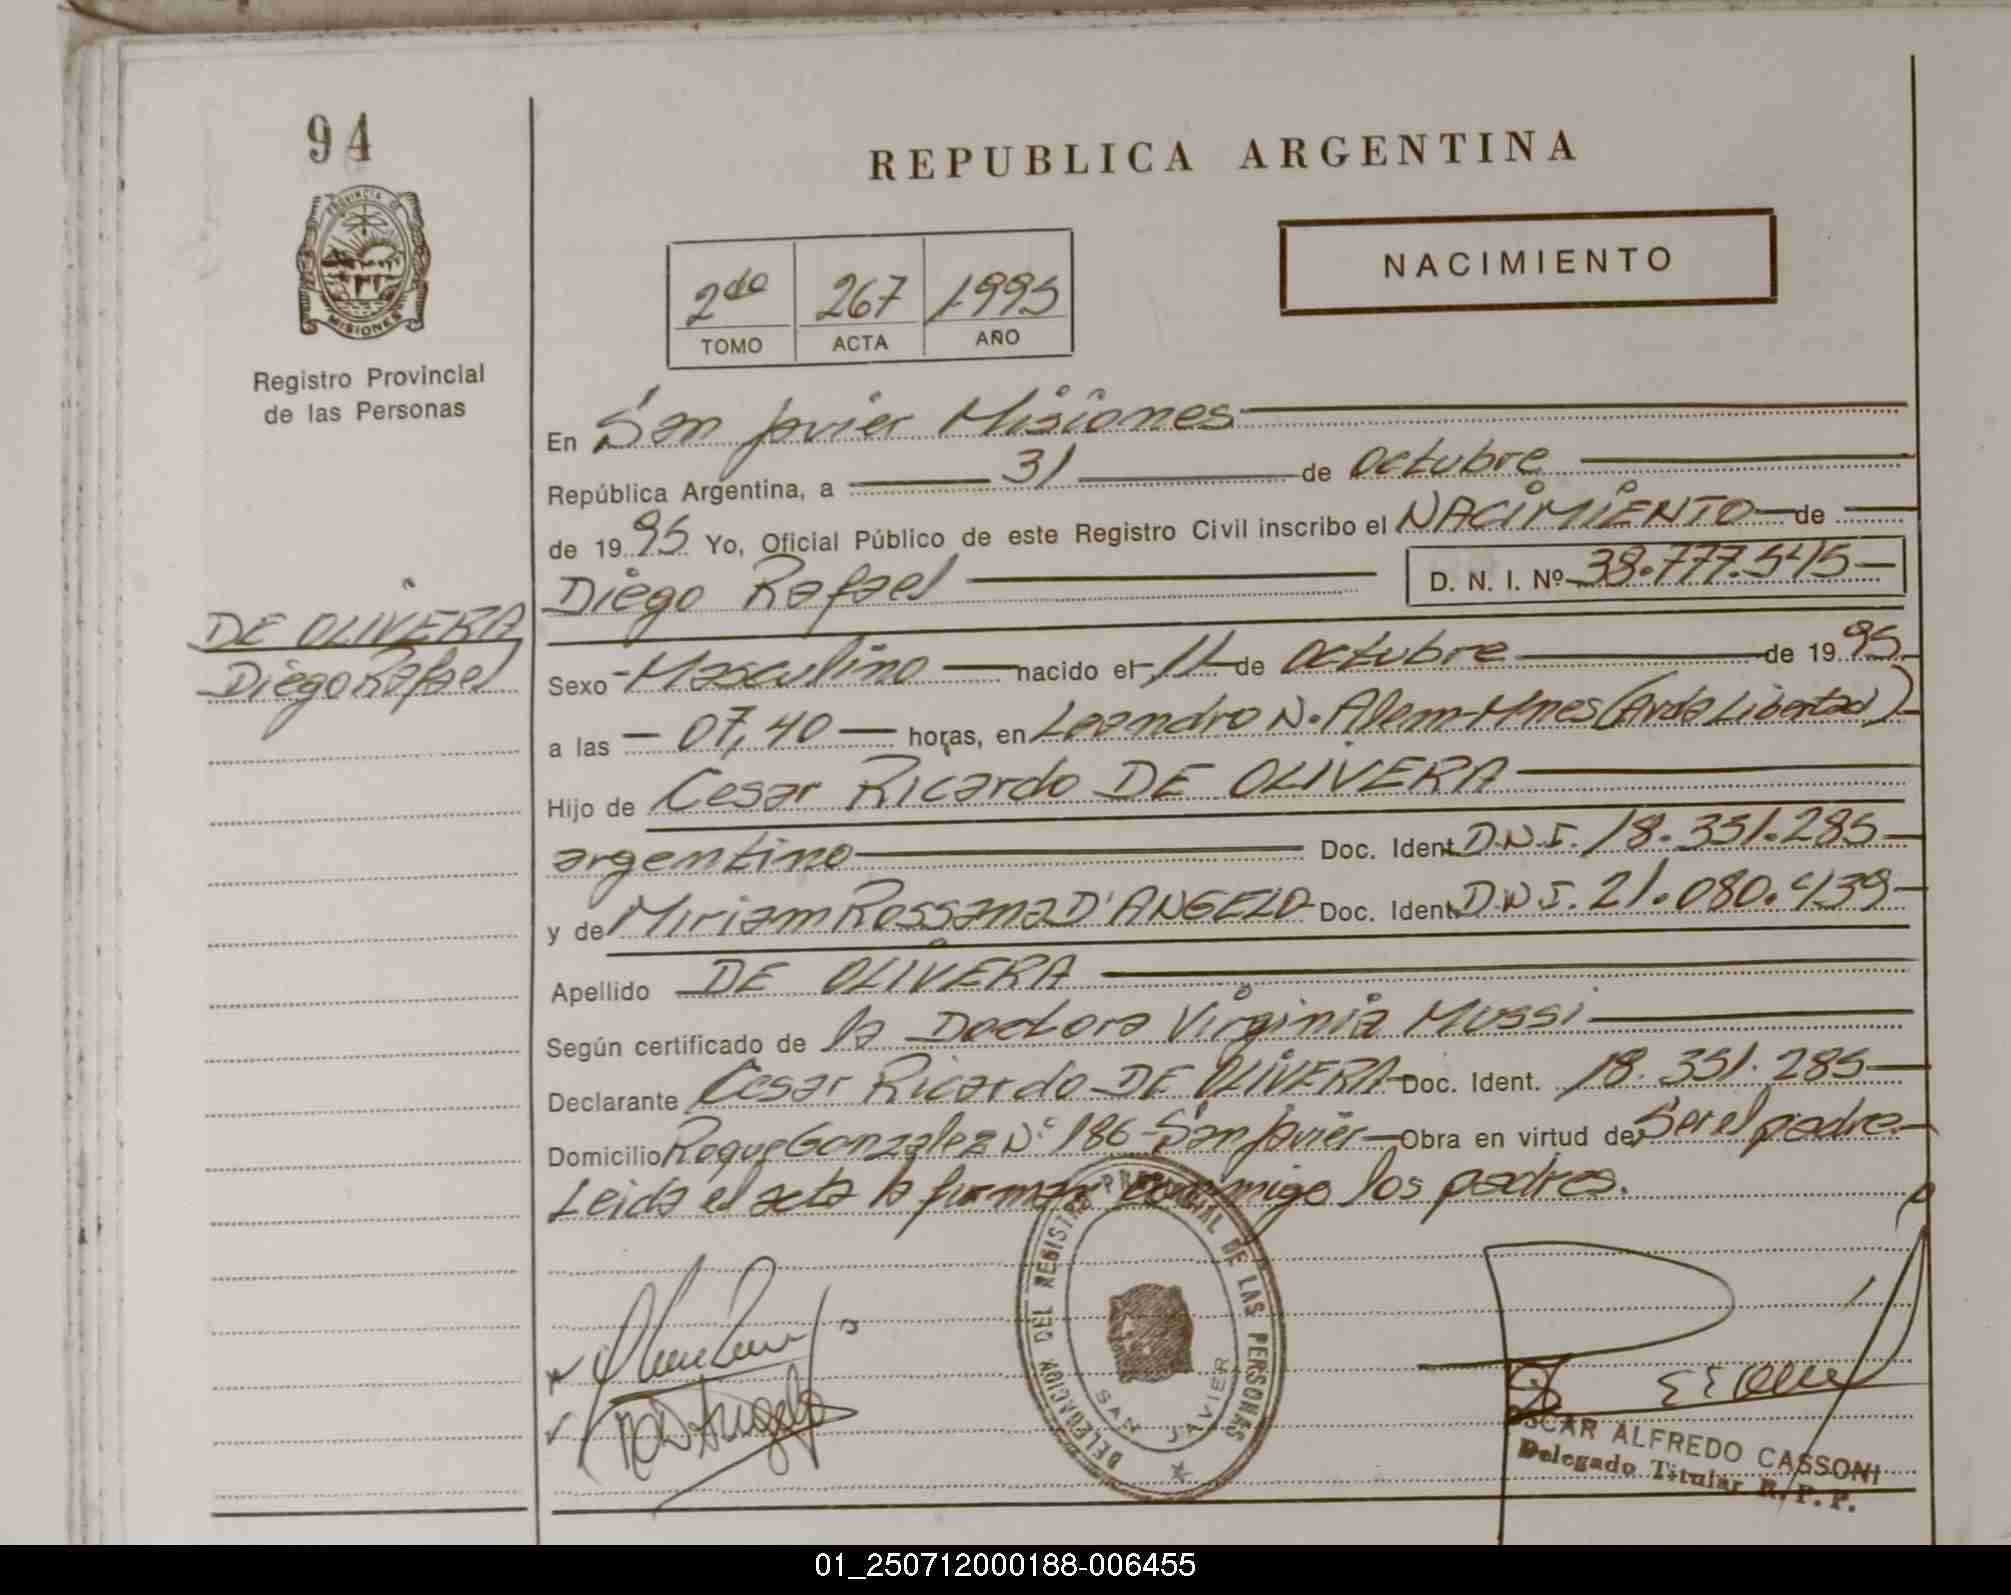 94
PROVINCIA DE
MISIONES
Registro Provincial
de las Personas
DE OLIVERA
Diego Rafael
REPUBLICA ARGENTINA
NACIMIENTO
2do 267 1995
TOMO ACTA AÑO
En San Javier Misiones
República Argentina, a 31 de octubre
de 1995 Yo, Oficial Público de este Registro Civil inscribo el NACIMIENTO de
Diego Rafael D. N. I. Nº 38.777.545
Sexo Masculino nacido el 11 de octubre de 1995
a las 07,40 horas, en Leandro N. Alem-Mnes (Avda Libertad)
Hijo de Cesar Ricardo DE OLIVERA
argentino Doc. Ident. D.N.I. 18.351.285
y de Miriam Rossana D'ANGELO Doc. Ident. D.N.I. 21.080.439
Apellido DE OLIVERA
Según certificado de la Doctora Virginia Mussi
Declarante Cesar Ricardo DE OLIVERA Doc. Ident. 18.351.285
Domicilio Roque Gonzalez Nº 186-San Javier Obra en virtud de Ser el padre
Leida el acta la firman conmigo los padres.
DELEGACION DEL REGISTRO PROVINCIAL DE LAS PERSONAS
SAN JAVIER
OSCAR ALFREDO CASSONI
Delegado Titular R. P. P.
01_250712000188-006455